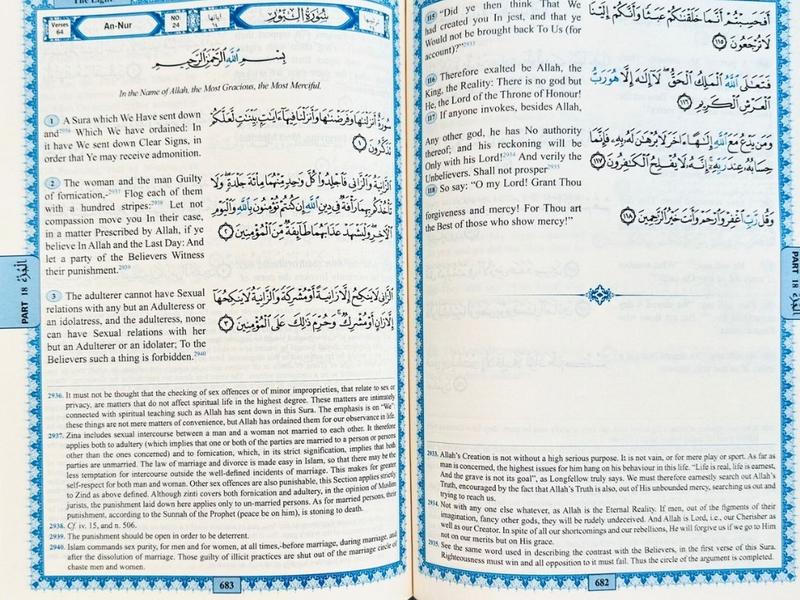 115 "Did ye then think that We
had created you In jest, and that ye
Would not be brought back To Us (for
account)?" 2933
أَفَحَسِبْتُمْ أَنَّمَا خَلَقْنَاكُمْ عَبَثًا وَأَنَّكُمْ إِلَيْنَا
لَا تُرْجَعُونَ ١١٥
116 Therefore exalted be Allah, the
King, the Reality: There is no god but
He, the Lord of the Throne of Honour!
فَتَعَالَى اللَّهُ الْمَلِكُ الْحَقُّ لَا إِلَٰهَ إِلَّا هُوَ رَبُّ
الْعَرْشِ الْكَرِيمِ ١١٦
117 If anyone invokes, besides Allah,
Any other god, he has No authority
thereof; and his reckoning will be
Only with his Lord! 2934 And verily the
Unbelievers. Shall not prosper 2935
وَمَن يَدْعُ مَعَ اللَّهِ إِلَٰهًا آخَرَ لَا بُرْهَانَ لَهُ بِهِ فَإِنَّمَا
حِسَابُهُ عِندَ رَبِّهِ إِنَّهُ لَا يُفْلِحُ الْكَافِرُونَ ١١٧
118 So say: "O my Lord! Grant Thou
forgiveness and mercy! For Thou art
the Best of those who show mercy!"
وَقُل رَّبِّ اغْفِرْ وَارْحَمْ وَأَنتَ خَيْرُ الرَّاحِمِينَ ١١٨
2933. Allah's Creation is not without a high serious purpose. It is not vain, or for mere play or sport. As far as
man is concerned, the highest issues for him hang on his behaviour in this life. "Life is real, life is earnest,
And the grave is not its goal", as Longfellow truly says. We must therefore earnestly search out Allah's
Truth, encouraged by the fact that Allah's Truth is also, out of His unbounded mercy, searching us out and
trying to reach us.
2934. Not with any one else whatever, as Allah is the Eternal Reality. If men, out of the figments of their
imagination, fancy other gods, they will be rudely undeceived. And Allah is Lord, i.e., our Cherisher as
well as our Creator. In spite of all our shortcomings and our rebellions, He will forgive us if we go to Him
not on our merits but on His grace.
2935. See the same word used in describing the contrast with the Believers, in the first verse of this Sura.
Righteousness must win and all opposition to it must fail. Thus the circle of the argument is completed.
682
PART 18
Verses
64
An-Nur
NO.
24
آياتها
٦٤
سُورَةُ النُّورِ
بِسْمِ اللَّهِ الرَّحْمَٰنِ الرَّحِيمِ
In the Name of Allah, the Most Gracious, the Most Merciful.
1 A Sura which We Have sent down
and 2936 Which We have ordained: In
it have We sent down Clear Signs, in
order that Ye may receive admonition.
سُورَةٌ أَنزَلْنَاهَا وَفَرَضْنَاهَا وَأَنزَلْنَا فِيهَا آيَاتٍ بَيِّنَاتٍ لَّعَلَّكُمْ
تَذَكَّرُونَ ١
2 The woman and the man Guilty
of fornication,- 2937 Flog each of them
with a hundred stripes: 2938 Let not
compassion move you In their case,
in a matter Prescribed by Allah, if ye
believe In Allah and the Last Day: And
let a party of the Believers Witness
their punishment. 2939
الزَّانِيَةُ وَالزَّانِي فَاجْلِدُوا كُلَّ وَاحِدٍ مِّنْهُمَا مِائَةَ جَلْدَةٍ وَلَا
تَأْخُذْكُم بِهِمَا رَأْفَةٌ فِي دِينِ اللَّهِ إِن كُنتُمْ تُؤْمِنُونَ بِاللَّهِ وَالْيَوْمِ
الْآخِرِ وَلْيَشْهَدْ عَذَابَهُمَا طَائِفَةٌ مِّنَ الْمُؤْمِنِينَ ٢
3 The adulterer cannot have Sexual
relations with any but an Adulteress or
an idolatress, and the adulteress, none
can have Sexual relations with her
but an Adulterer or an idolater; To the
Believers such a thing is forbidden. 2940
الزَّانِي لَا يَنكِحُ إِلَّا زَانِيَةً أَوْ مُشْرِكَةً وَالزَّانِيَةُ لَا يَنكِحُهَا
إِلَّا زَانٍ أَوْ مُشْرِكٌ وَحُرِّمَ ذَٰلِكَ عَلَى الْمُؤْمِنِينَ ٣
2936. It must not be thought that the checking of sex offences or of minor improprieties, that relate to sex or
privacy, are matters that do not affect spiritual life in the highest degree. These matters are intimately
connected with spiritual teaching such as Allah has sent down in this Sura. The emphasis is on "We"
these things are not mere matters of convenience, but Allah has ordained them for our observance in life.
2937. Zina includes sexual intercourse between a man and a woman not married to each other. It therefore
applies both to adultery (which implies that one or both of the parties are married to a person or persons
other than the ones concerned) and to fornication, which, in its strict signification, implies that both
parties are unmarried. The law of marriage and divorce is made easy in Islam, so that there may be the
less temptation for intercourse outside the well-defined incidents of marriage. This makes for greater
self-respect for both man and woman. Other sex offences are also punishable, this Section applies strictly
to Zind as above defined. Although zinti covers both fornication and adultery, in the opinion of Muslim
jurists, the punishment laid down here applies only to un-married persons. As for married persons, their
punishment, according to the Sunnah of the Prophet (peace be on him), is stoning to death.
2938. Cf. iv. 15, and n. 506.
2939. The punishment should be open in order to be deterrent.
2940. Islam commands sex purity, for men and for women, at all times,-before marriage, during marriage, and
after the dissolution of marriage. Those guilty of illicit practices are shut out of the marriage circle of
chaste men and women.
683
PART 18